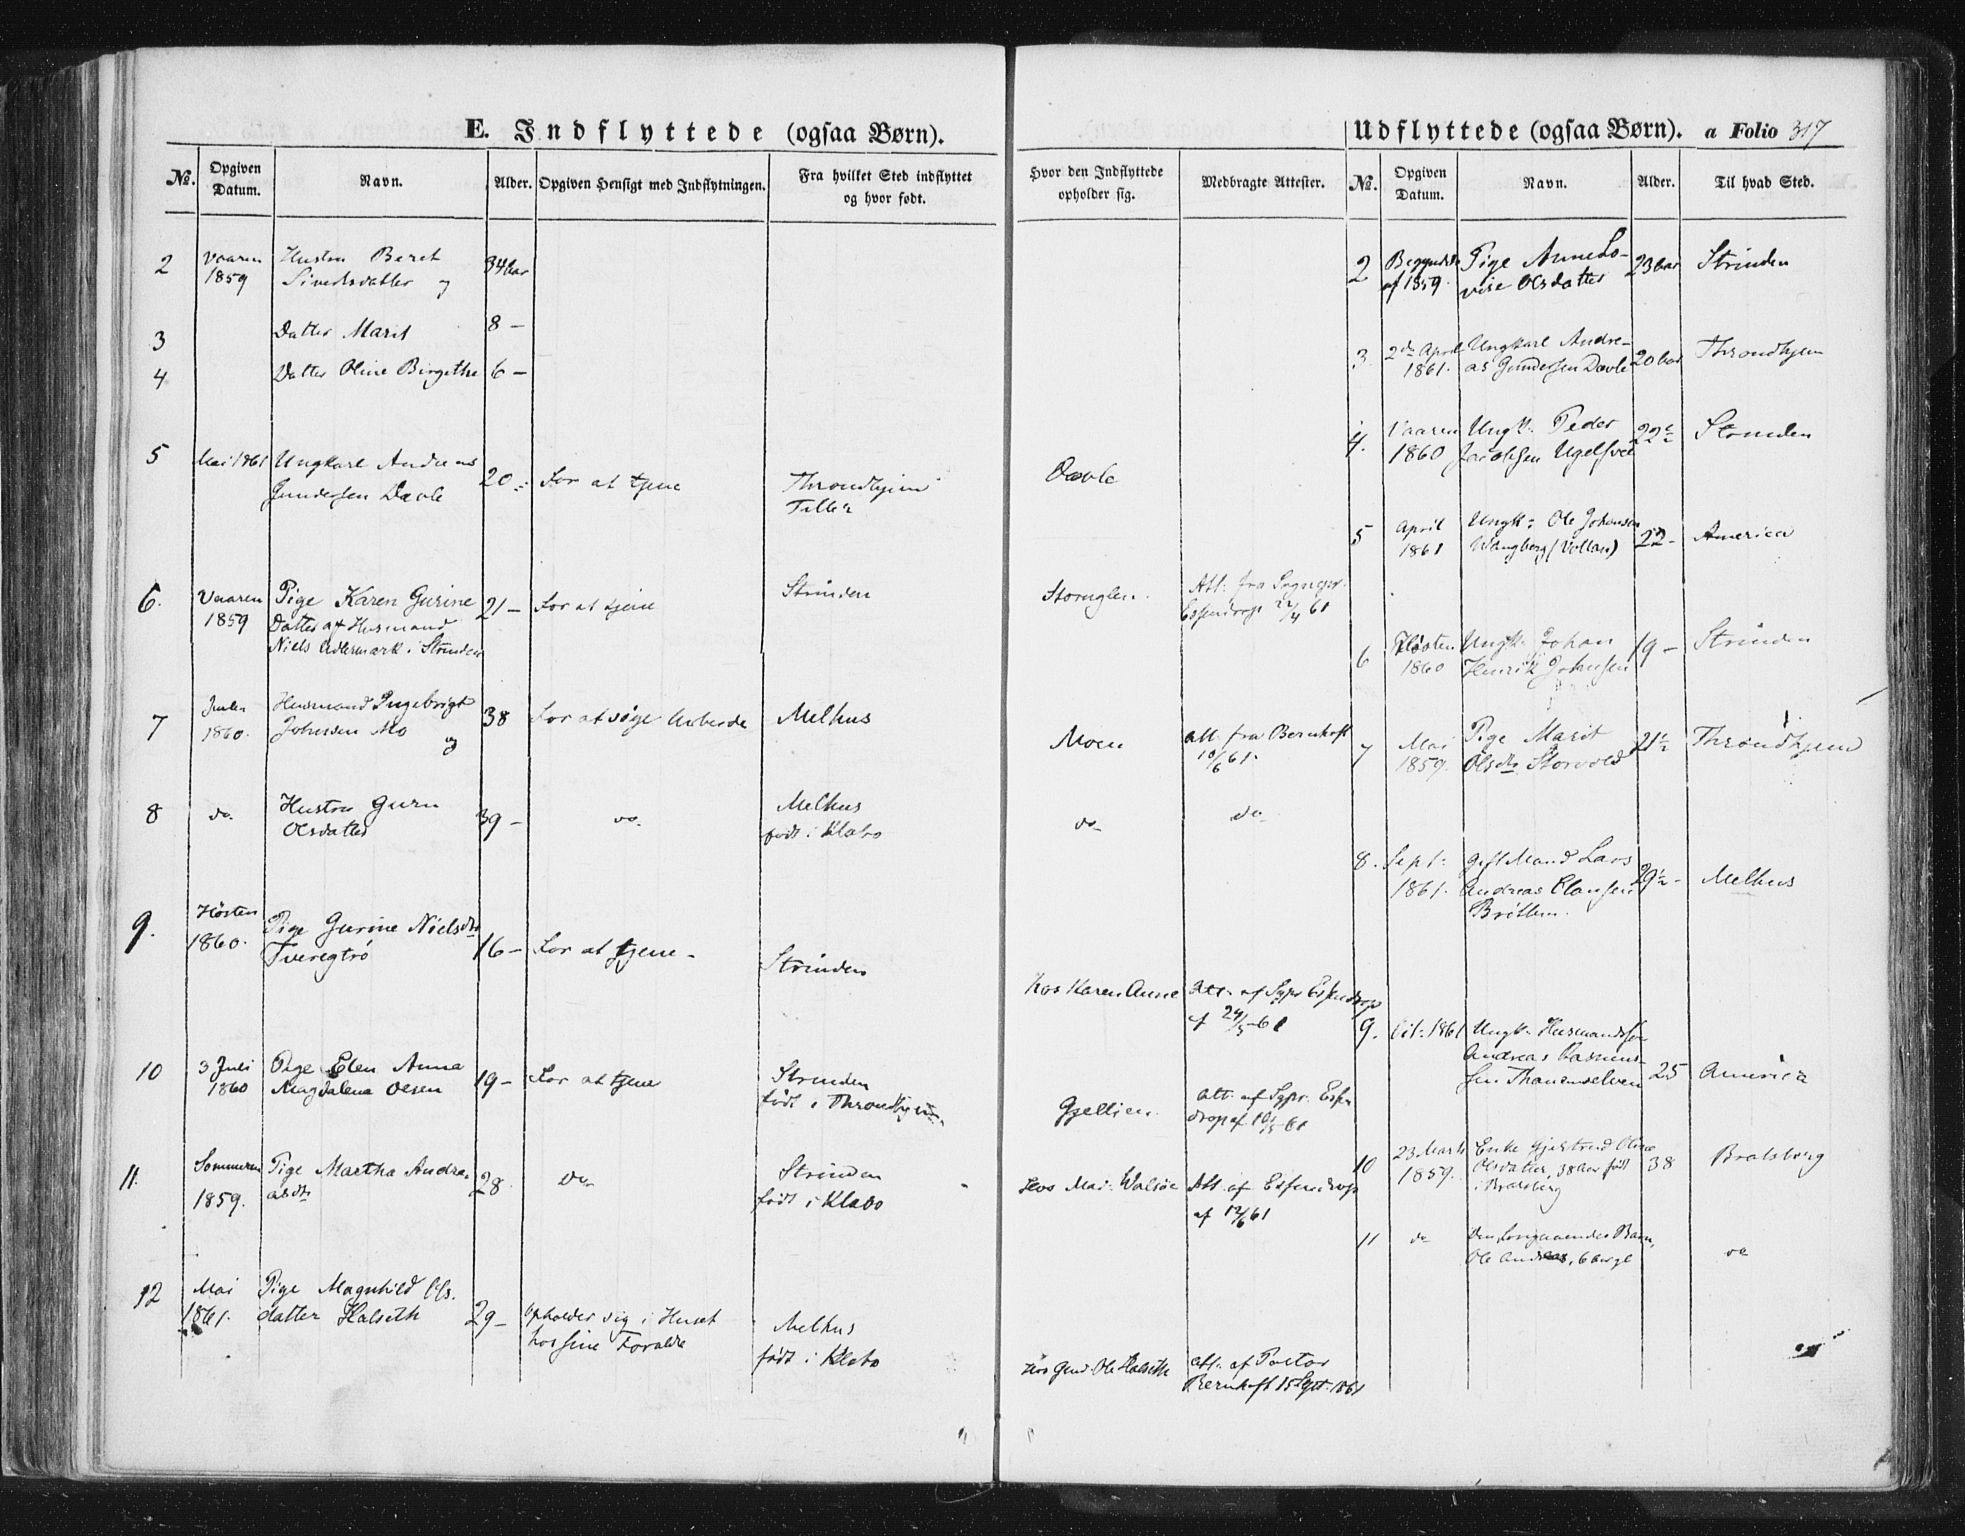 E. Indflyttede (ogsaa Børn).
No. Opgiven Datum. Navn. Alder. Opgiven Hensigt med Indflytningen. Fra hvilket Sted indflyttet og hvor født.
2 Vaaren Hustru Beret 34 Aar
1859 Sivertsdatter og
3 Datter Marit 8 —
4 Datter Oline Birgithe 6 —
5 Mai 1861 Ungkarl Andreas 20 For at tjene Throndhjem
Gundersen Davle Tiller
6. Vaaren Pige Karen Gurine 21 — For at tjene Strinden
1859 Datter af Husmand
Niels i Strinden
7 Husmand Ingebrigt 38 For at søge Arbeide Melhus
1860. Johnsen Mo og
8 do. Hustru Guru 39 — do. Melhus
Olsdatter født i Klæbo
9. Høsten Pige Gurine Nielsdtr 16 — For at tjene — Strinden
1860. Tveregtrø
10 3 Juli Pige Elen Anna 19 — For at tjene Strinden
1860 Magdalena Olsen født i Throndhjem
11. Sommeren Pige Martha Andre- 28 do Strinden
1859. asdtr født i Klæbo
12 Mai Pige Magnhild Ols. 29 — opholder sig i Huset Melhus
1861. datter Halseth hos sine Forældre født i Klæbo
Udflyttede (ogsaa Børn). a Folio 317
Hvor den Indflyttede opholder sig. Medbragte Attester. No. Opgiven Datum. Navn. Alder. Til hvad Sted.
2 Begyndels. Pige Anne Lo- 23 Aar Strinden
af 1859. vise Olsdatter
3 2den April Ungkarl Andre- 20 Aar Throndhjem
1861. as Gundersen Davle
4. Vaaren Ungk. Peder 22 Strinden
1860 Jacobsen
Davle
5 April Ungk: Ole Johansen 22 — America
1861 Wangberg (Vollan)
Att. fra Sognepr.
Essendrop 22/4 61
6 Høsten Ungk. Johan 19 — Strinden
1860 Henrik Johnsen
Moen Att. fra Bernhoft
10/6 61.
7 Mai Pige Marit 21½ Throndhjem
1859. Olsdtr Storvold
do do
8. Sept: Gift Mand Lars 29½ — Melhus
1861. Andreas Clausen
Bröttem.
hos Karen Anne Att. af Sgpr Essendrop
af 24/5 61
9. 1861 Ungk. Husmandssøn
Andreas Rasmus-
sen 25 America
Gjellien. Att. af Sgpr. Essen
drop af 10/5 61
10 23 Marts Enke Gjertrud Olina 38 Bratsberg
1859. Olsdatter, 38 Aar født
i Bratsberg
Hos Att. af Essendrop
af 12/6 61
11 do Den Foregaaendes Barn, do
Ole Andreas, 6 Aar gl
Hos Ole Halseth Att. af Pastor
Bernhoft 15 Sept. 1861